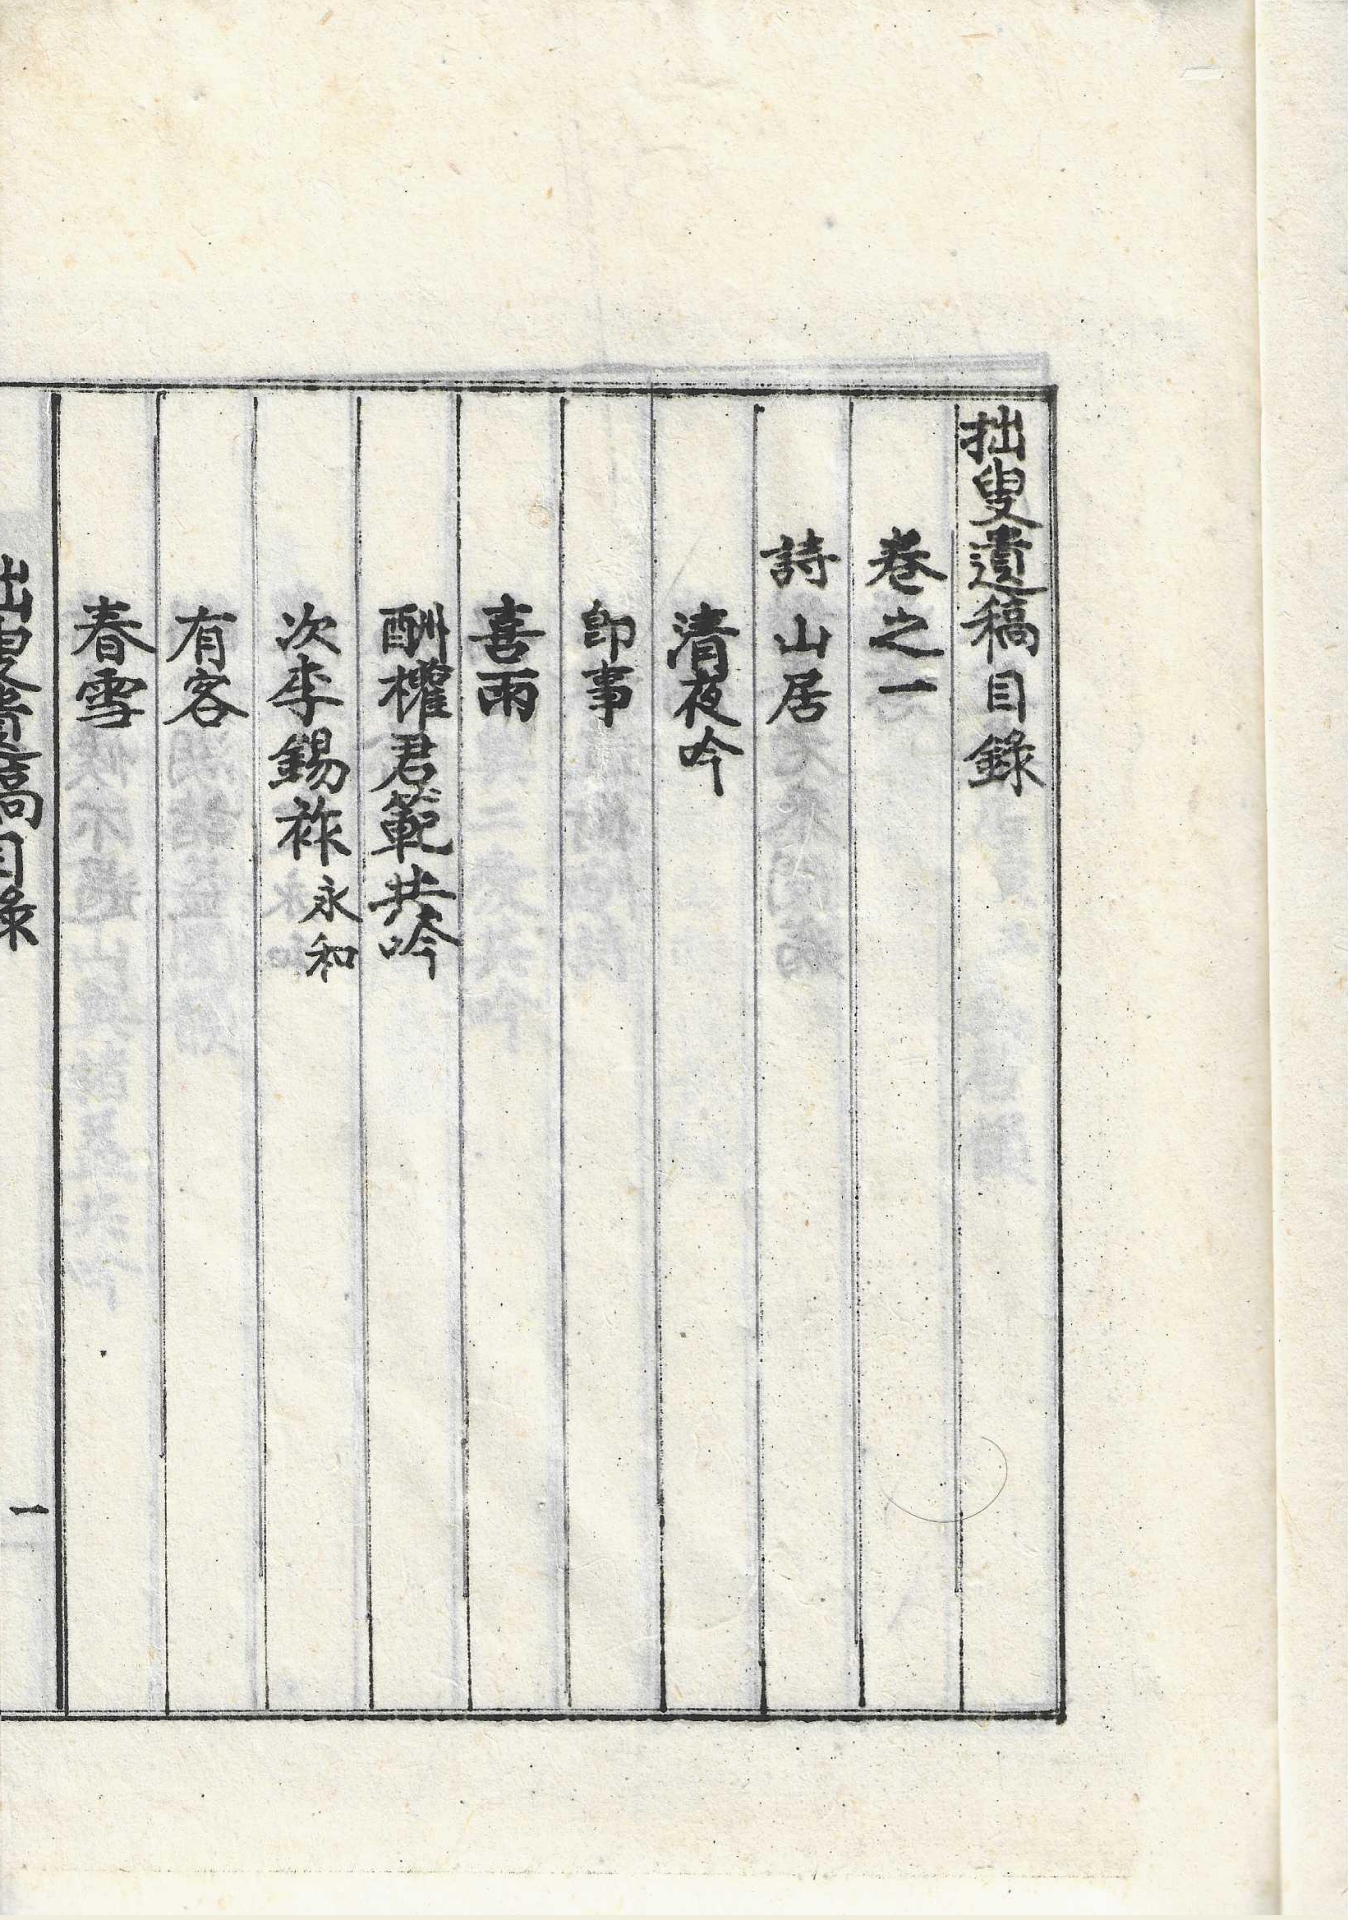 拙叟遺稿目錄
卷之一
詩 山居
清夜吟
卽事
喜雨
酬權君範共吟
次李錫祚永和
有客
春雪
拙叟遺稿目錄 一